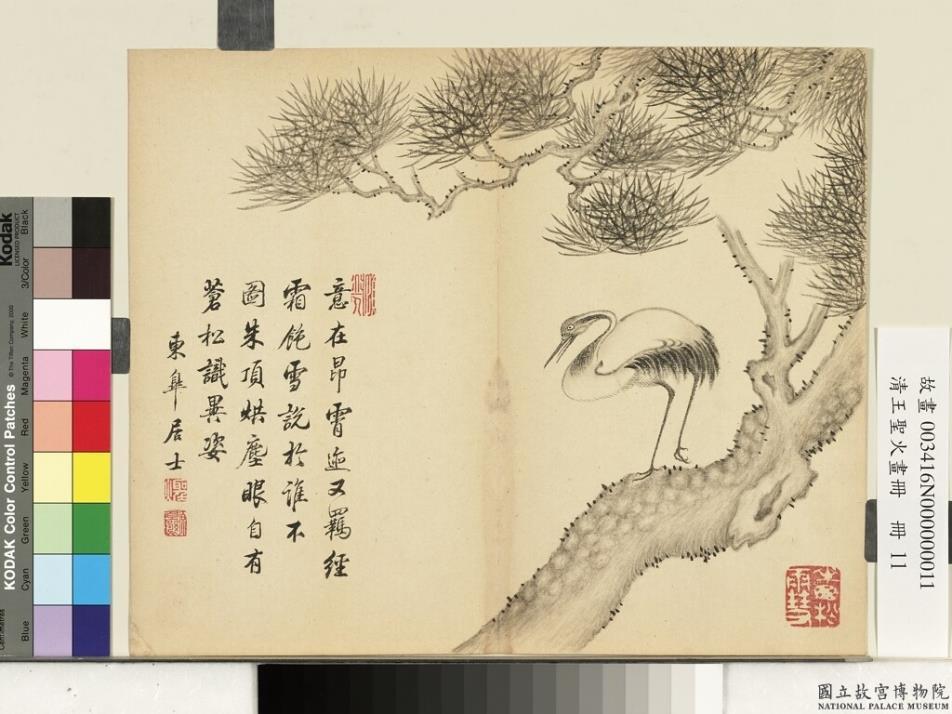 意在昂霄迹又羈經
霜飽雪說於誰不
圖朱項烘塵眼自有
蒼松識異姿
東皋居士
故畫 003416N000000011
清王聖火畫冊 冊 11
KODAK Color Control Patches
© The Tiffen Company, 2000
Kodak
LICENSED PRODUCT
Black
3/Color
White
Magenta
Red
Yellow
Green
Cyan
Blue
Centimetres
國立故宮博物院
NATIONAL PALACE MUSEUM